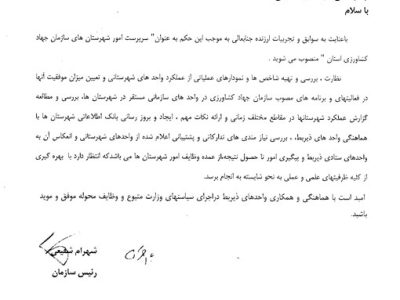 با سلام
باعنایت به سوابق و تجربیات ارزنده جنابعالی به موجب این حکم به عنوان" سرپرست امور شهرستان های سازمان جهاد
کشاورزی استان " منصوب می شوید .
نظارت ، بررسی و تهیه شاخص ها و نمودارهای عملیاتی از عملکرد واحد های شهرستانی و تعیین میزان موفقیت آنها
در فعالیتهای و برنامه های مصوب سازمان جهاد کشاورزی در واحد های سازمانی مستقر در شهرستان ها، بررسی و مطالعه
گزارش عملکرد شهرستانها در مقاطع مختلف زمانی و ارائه نکات مهم ، ایجاد و بروز رسانی بانک اطلاعاتی شهرستان ها با
هماهنگی واحد های ذیربط، ، بررسی نیاز مندی های تدارکاتی و پشتیبانی اعلام شده از واحدهای شهرستانی و انعکاس آن به
واحدهای ستادی ذیربط و پیگیری امور تا حصول نتیجه‌از عمده وظایف امور شهرستان ها می باشدکه انتظار دارد با بهره گیری
از کلیه ظرفیتهای علمی و عملی به نحو شایسته به انجام برسد.
امید است با هماهنگی و همکاری واحدهای ذیربط دراجرای سیاستهای وزارت متبوع و وظایف محوله موفق و موید
باشید.
شهرام شفیعی
رئیس سازمان